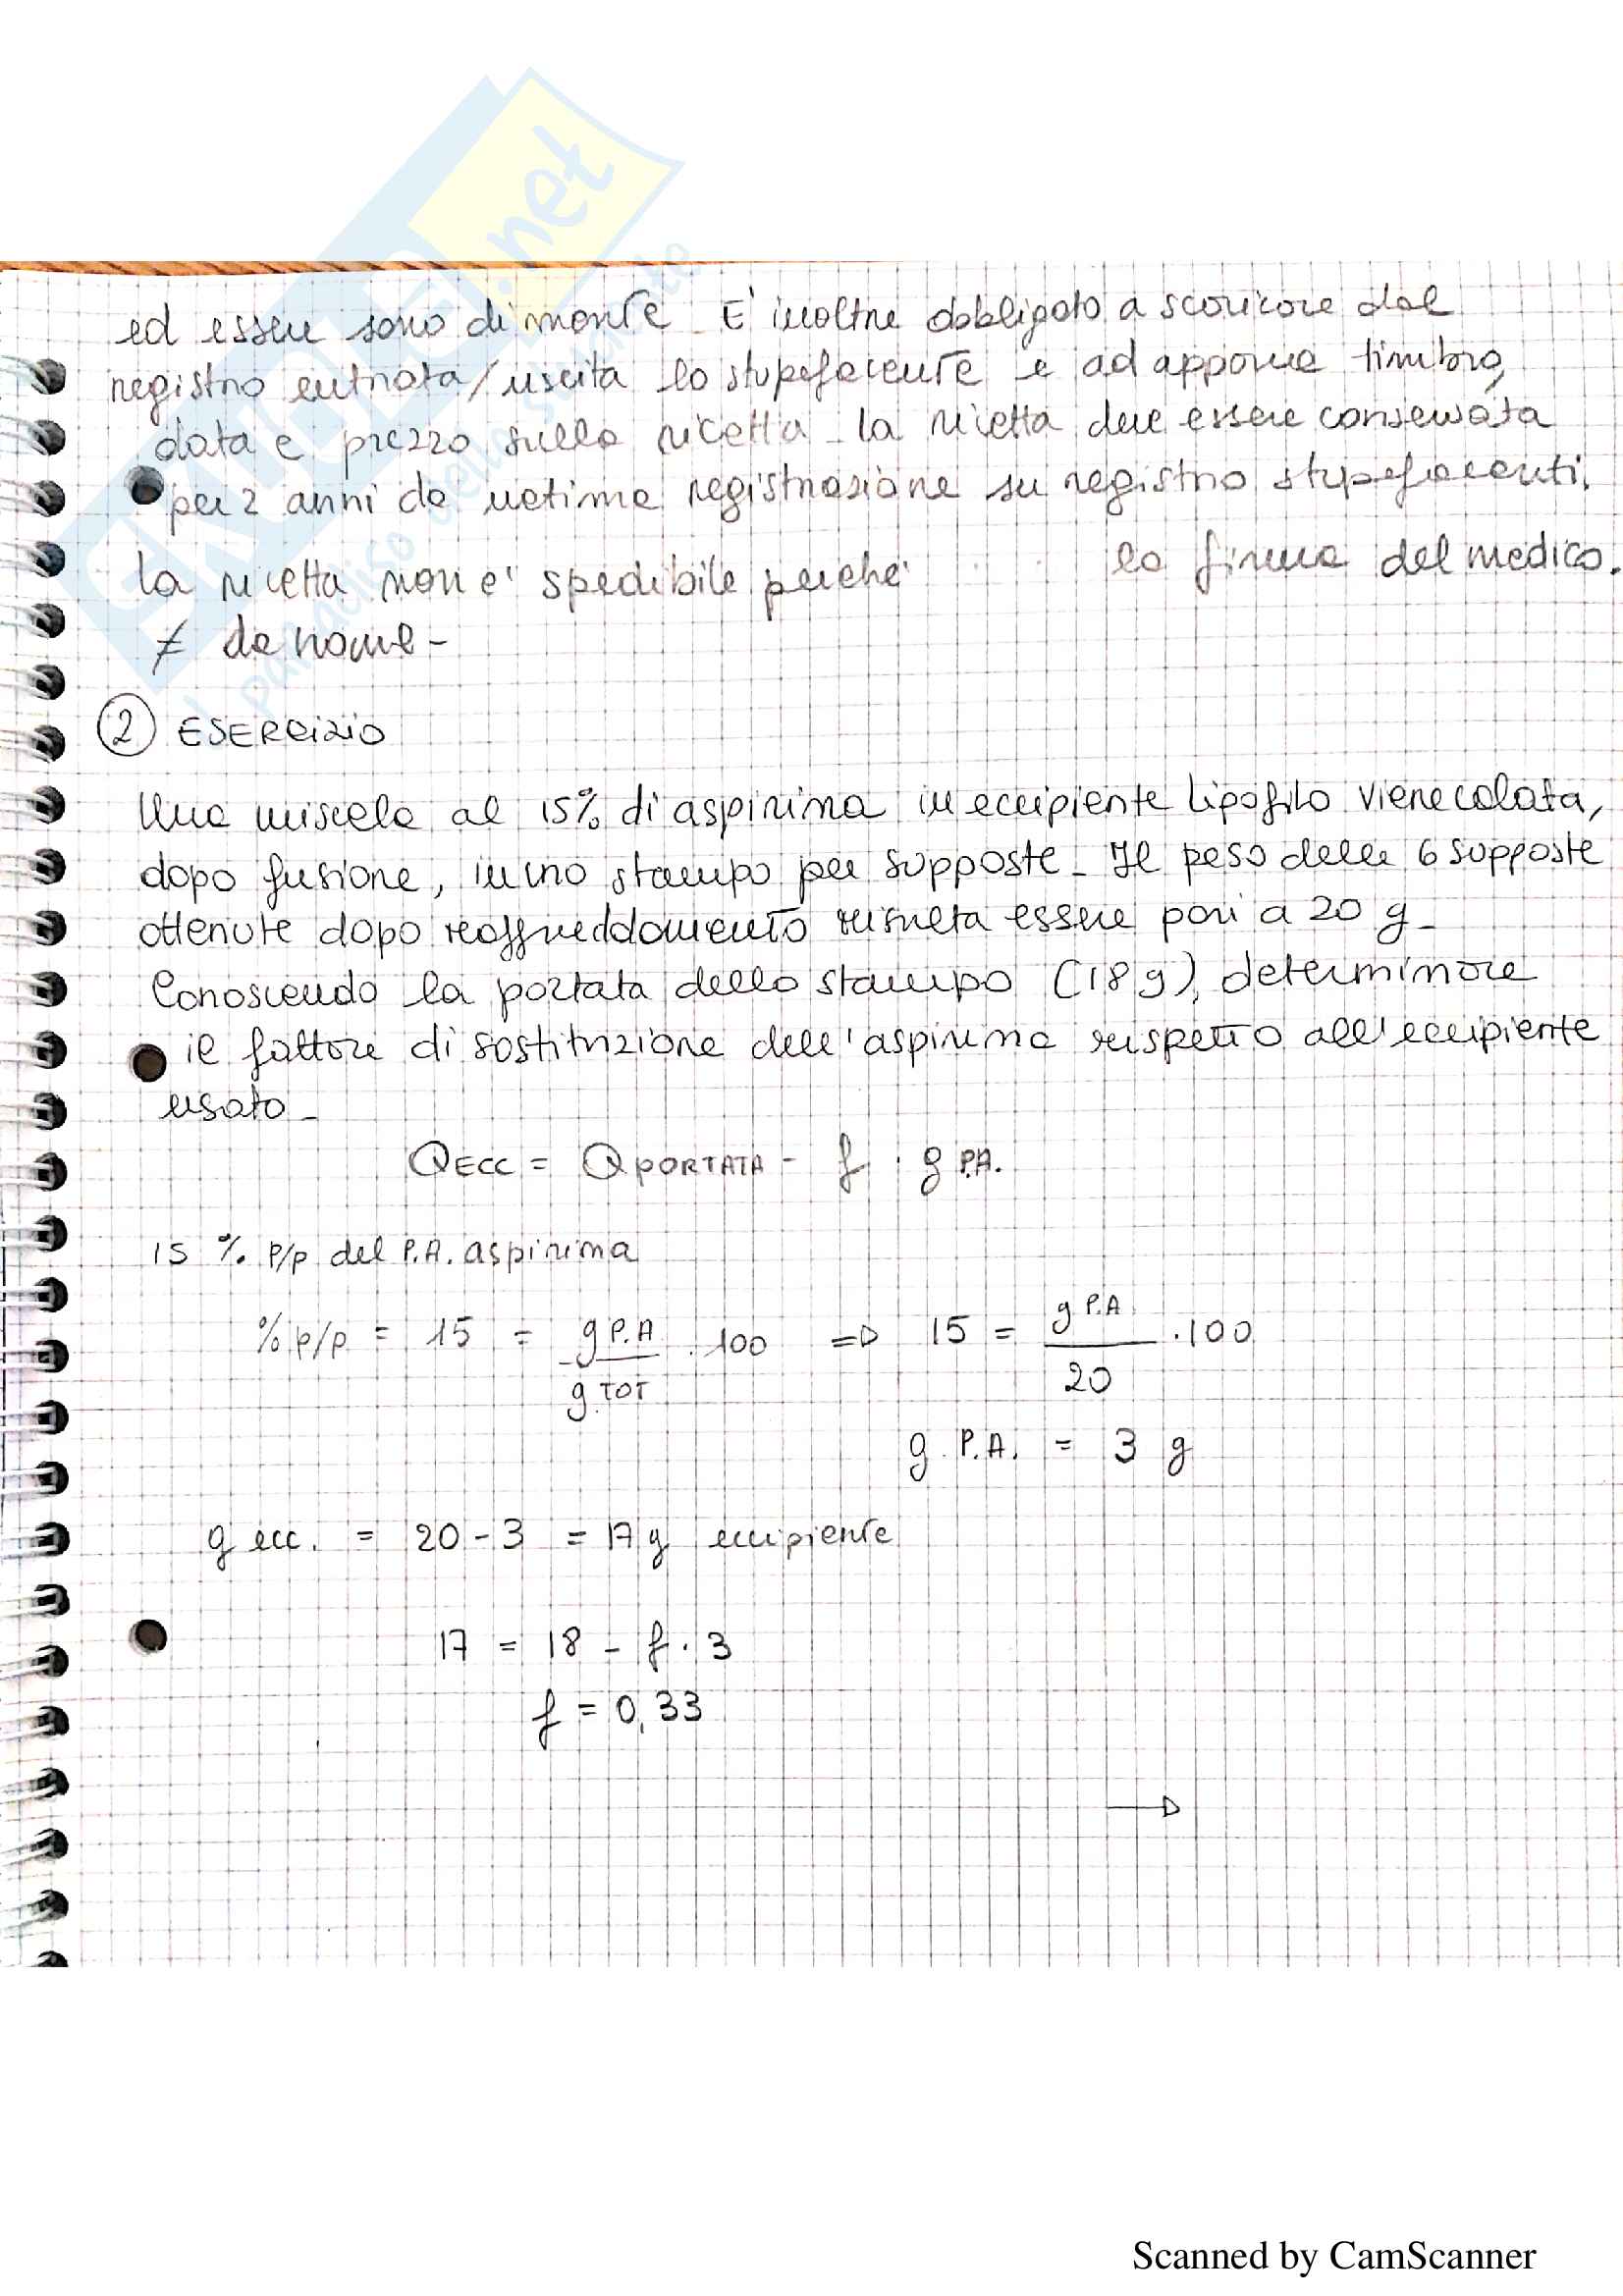 ed essere sano di mente. E' inoltre obbligato a scaricare dal
registro entrata/uscita lo stupefacente e ad apporre timbro,
data e prezzo sulla ricetta. La ricetta deve essere conservata
per 2 anni da ultima registrazione su registro stupefacenti.
La ricetta non e' spedibile perche' la firma del medico.
≠ da nome -
2 ESERCIZIO
Una miscela al 15% di aspirina in eccipiente lipofilo viene colata,
dopo fusione, in uno stampo per supposte. Il peso delle 6 supposte
ottenute dopo raffreddamento risulta essere pari a 20 g.
Conoscendo la portata dello stampo (18 g), determinare
il fattore di sostituzione dell'aspirina rispetto all'eccipiente
usato.
QECC = QPORTATA - f · g P.A.
15 % P/p del P.A. aspirina
% p/p = 15 = g P.A / g TOT · 100 => 15 = g P.A / 20 · 100
g P.A. = 3 g
g ecc. = 20 - 3 = 17 g eccipiente
17 = 18 - f · 3
f = 0,33
→
.net
Scanned by CamScanner